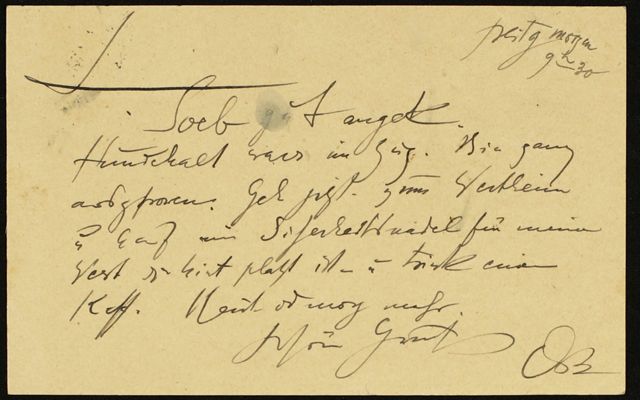 Freitg morgen
9h 30
Soeb gut angek.
Hundekalt wars im Zug. Bin ganz
ausgfroren. Geh jetzt zum Wertheim
u kauf mir Sicherheitsnadel für meine
West die hint platzt ist u trink einen
Kaff. Heut od morg mehr.
Schön Gruß